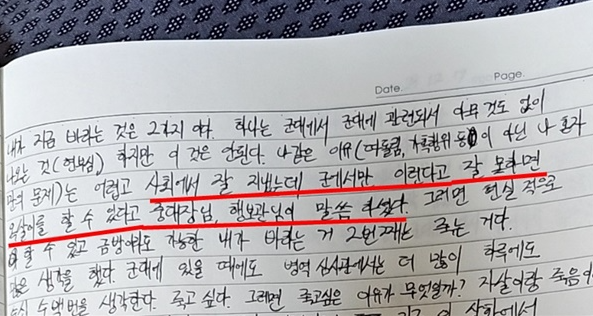 Date. Page.
내가 지금 바라는 것은 2가지 이다. 하나는 군대에서 군대에 관련되서 아무것도 없이
나오는 것 (현부심) 하지만 이 것은 안된다. 나같은 이유(따돌림, 가혹행위 등이 아닌 나 혼자
만의 문제)는 어렵고 사회에서 잘 지냈는데 군에서만 이런다고 잘 못하면
옥살이를 할 수 있다고 중대장님, 행보관님이 말씀 하셨다. 그러면 현실 적으로
할 수 있고 금방이라도 가능한 내가 바라는 거 2번째는 죽는 거다.
많은 생각을 했다. 군대에 있을 때에도 병역 심사관에서는 더 많이 하루에도
수백번을 생각한다. 죽고 싶다. 그러면 죽고싶은 이유가 무엇일까? 자살이랑 죽음이
상황에서